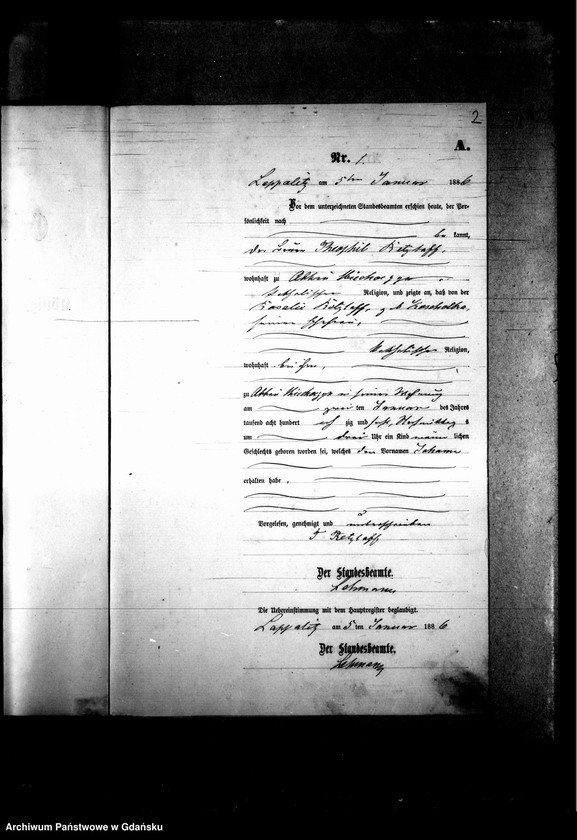 2
A.
Nr. 1.
Lappalitz am 5ten Januar 1886
Vor dem unterzeichneten Standesbeamten erschien heute, der Per-
sönlichkeit nach
be kannt,
der Theophil Retzlaff,
wohnhaft zu
katholischer Religion, und zeigte an, daß von der
Rosalie Retzlaff, geb.
seiner Ehefrau,
katholischer Religion,
wohnhaft bei ihm,
zu in seiner Wohnung
am zwei ten Januar des Jahres
tausend acht hundert acht zig und sechs, Nachmittags
um drei Uhr ein Kind männ lichen
Geschlechts geboren worden sei, welches den Vornamen Johann
erhalten habe.
Vorgelesen, genehmigt und unterschrieben
T. Retzlaff
Der Standesbeamte.
Lehmann
Die Uebereinstimmung mit dem Hauptregister beglaubigt.
Lappalitz am 5 ten Januar 1886
Der Standesbeamte.
Lehmann
Archiwum Państwowe w Gdańsku